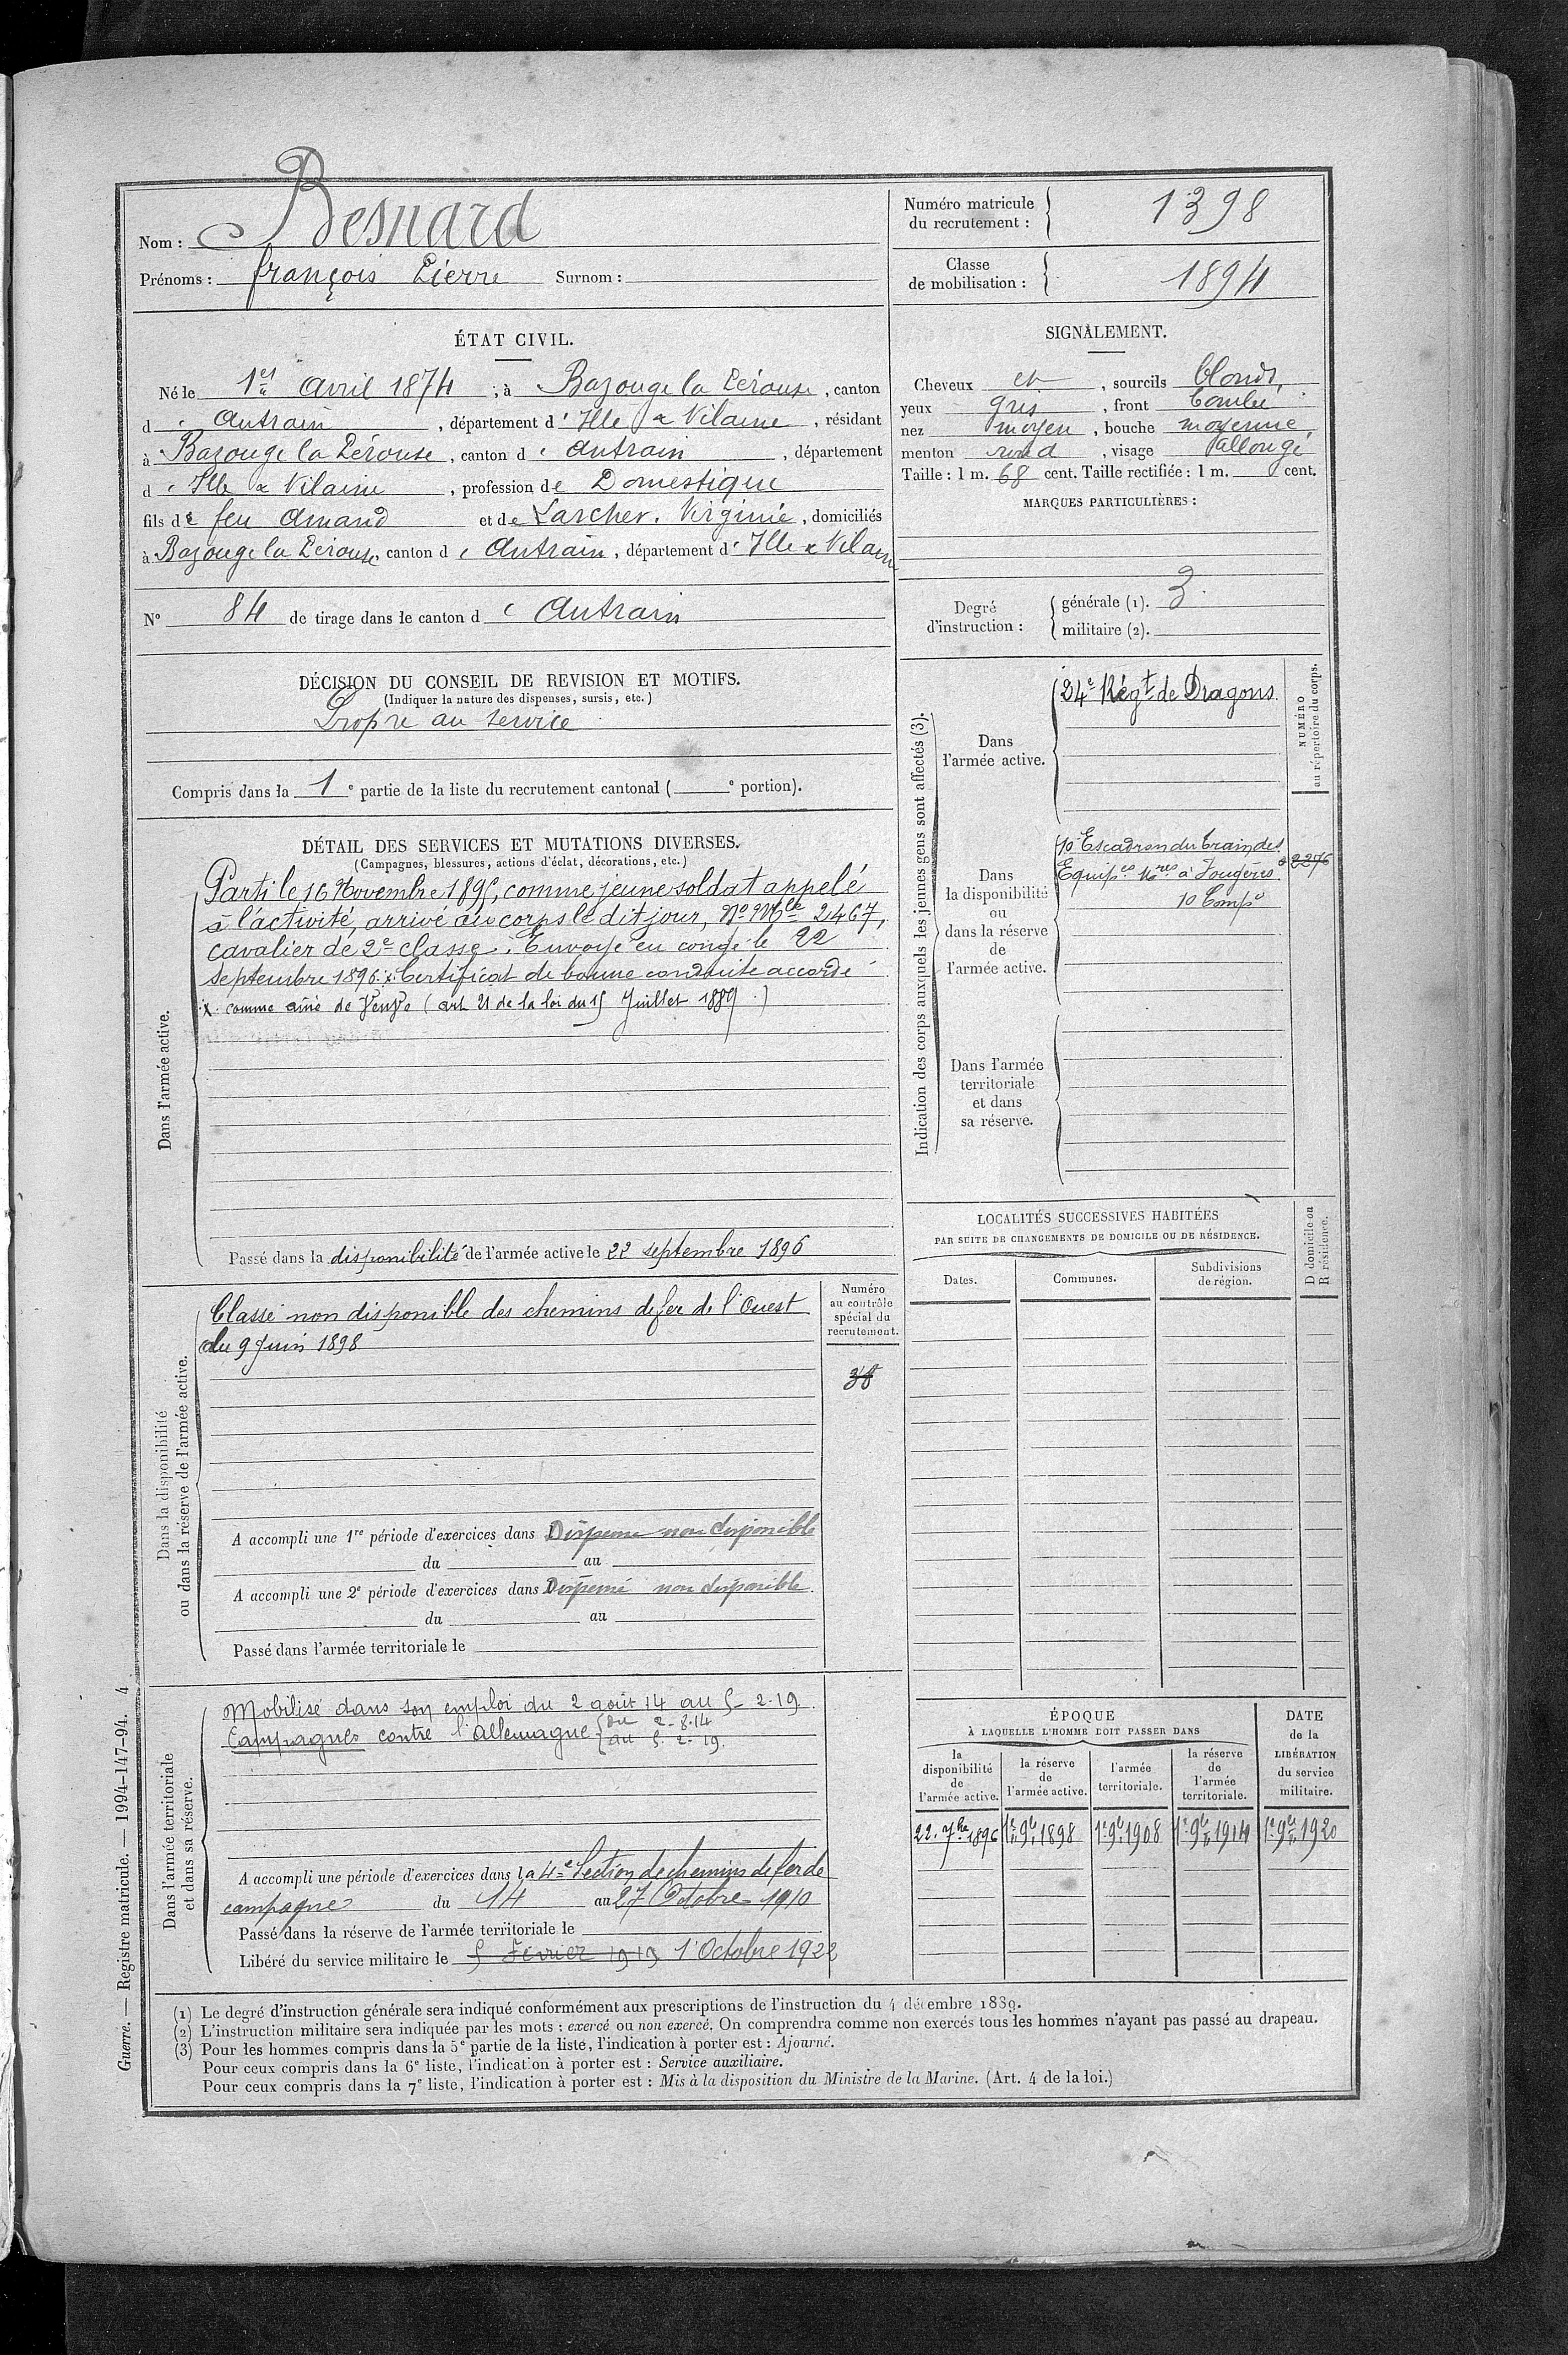 Nom : Besnard
Prénoms : François Pierre Surnom :
Numéro matricule du recrutement : 1398
Classe de mobilisation : 1894
ÉTAT CIVIL.
Né le 1er avril 1874, à Bazouge la Pérouse, canton
d'Antrain, département d'Ille & Vilaine, résidant
à Bazouge la Pérouse, canton d'Antrain, département
d'Ille & Vilaine, profession de Domestique
fils de feu Amand et de Larcher. Virginie, domiciliés
à Bazouge la Pérouse, canton d'Antrain, département d'Ille & Vilaine
N° 84 de tirage dans le canton d'Antrain
SIGNALEMENT.
Cheveux et, sourcils blonds,
yeux gris, front bombé
nez moyen, bouche moyenne
menton rond, visage allongé
Taille : 1 m. 68 cent. Taille rectifiée : 1 m. cent.
MARQUES PARTICULIÈRES :
Degré d'instruction : générale (1). 3
militaire (2).
DÉCISION DU CONSEIL DE REVISION ET MOTIFS.
(Indiquer la nature des dispenses, sursis, etc.)
Propre au service
Compris dans la 1e partie de la liste du recrutement cantonal ( e portion).
DÉTAIL DES SERVICES ET MUTATIONS DIVERSES.
(Campagnes, blessures, actions d'éclat, décorations, etc.)
Dans l'armée active.
Parti le 16 Novembre 1895, comme jeune soldat appelé
à l'activité, arrivé au corps le dit jour, No Mle 2467,
cavalier de 2e classe. Envoyé en congé le 22
septembre 1896. x. Certificat de bonne conduite accordé
x. comme ainé de Veuve (art 21 de la loi du 15 Juillet 1889.)
Passé dans la disponibilité de l'armée active le 22 septembre 1896
Indication des corps auxquels les jeunes gens sont affectés (3).
NUMÉRO au répertoire du corps.
Dans
l'armée active.
24e Régt de Dragons
Dans
la disponibilité
ou
dans la réserve
de
l'armée active.
10e Escadron du train des
Equipes Mres à Fougères 2276
10 Compie
Dans l'armée
territoriale
et dans
sa réserve.
Dans la disponibilité
ou dans la réserve de l'armée active.
Numéro
au contrôle
spécial du
recrutement.
38
Classé non disponible des chemins de fer de l'Ouest
du 9 Juin 1898
A accompli une 1re période d'exercices dans Dispensé non disponible
du au
A accompli une 2e période d'exercices dans Dispensé non disponible.
du au
Passé dans l'armée territoriale le
LOCALITÉS SUCCESSIVES HABITÉES
PAR SUITE DE CHANGEMENTS DE DOMICILE OU DE RÉSIDENCE.
Dates. Communes. Subdivisions de région. D domicile ou R résidence.
Dans l'armée territoriale
et dans sa réserve.
Mobilisé dans son emploi du 2 août 14 au 5-2-19.
Campagnes contre l'Allemagne du 2-8-14
au 5-2-19.
A accompli une période d'exercices dans la 4e Section de chemins de fer de
campagne du 14 au 27 Octobre 1910
Passé dans la réserve de l'armée territoriale le
Libéré du service militaire le 5 Février 1919 1 Octobre 1922
ÉPOQUE
À LAQUELLE L'HOMME DOIT PASSER DANS
la disponibilité de l'armée active.
la réserve de l'armée active.
l'armée territoriale.
la réserve de l'armée territoriale.
DATE de la LIBÉRATION du service militaire.
22. 7bre 1896 1er 9bre 1898 1er 9bre 1908 1er 9bre 1914 1er 9bre 1920
(1) Le degré d'instruction générale sera indiqué conformément aux prescriptions de l'instruction du 4 décembre 1889.
(2) L'instruction militaire sera indiquée par les mots : exercé ou non exercé. On comprendra comme non exercés tous les hommes n'ayant pas passé au drapeau.
(3) Pour les hommes compris dans la 5e partie de la liste, l'indication à porter est : Ajourné.
Pour ceux compris dans la 6e liste, l'indication à porter est : Service auxiliaire.
Pour ceux compris dans la 7e liste, l'indication à porter est : Mis à la disposition du Ministre de la Marine. (Art. 4 de la loi.)
Guerre. — Registre matricule. — 1994-147-94. 4